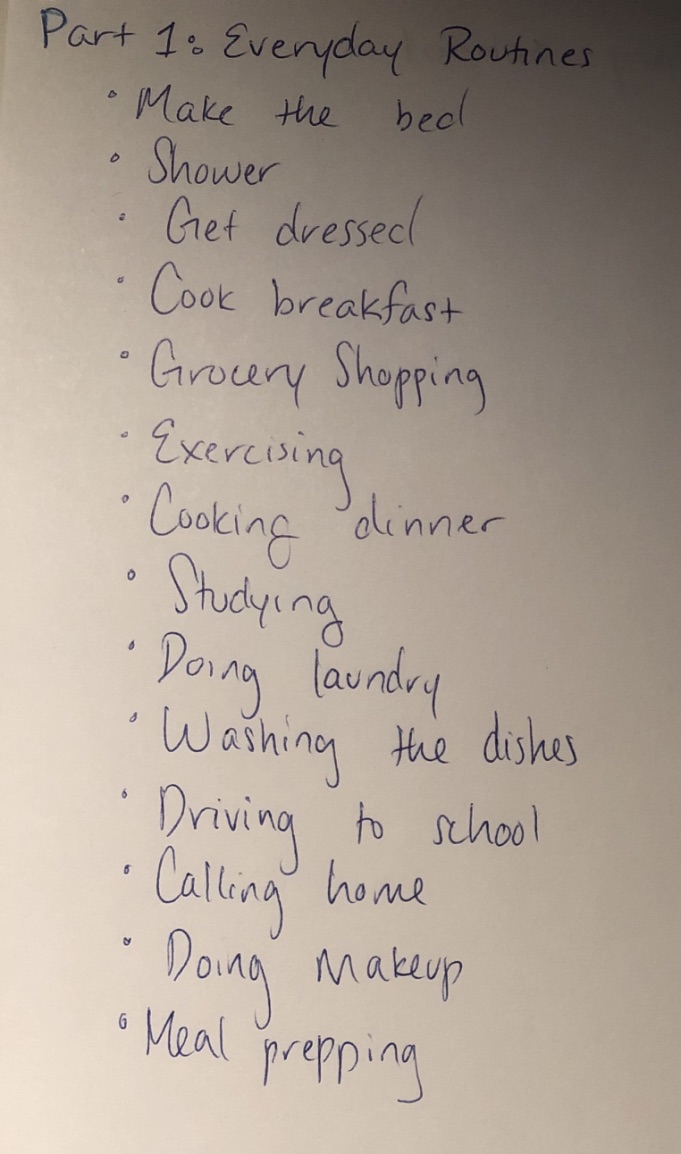 Part 1: Everyday Routines
• Make the bed
• Shower
• Get dressed
• Cook breakfast
• Grocery Shopping
• Exercising
• Cooking dinner
• Studying
• Doing laundry
• Washing the dishes
• Driving to school
• Calling home
• Doing Makeup
• Meal prepping